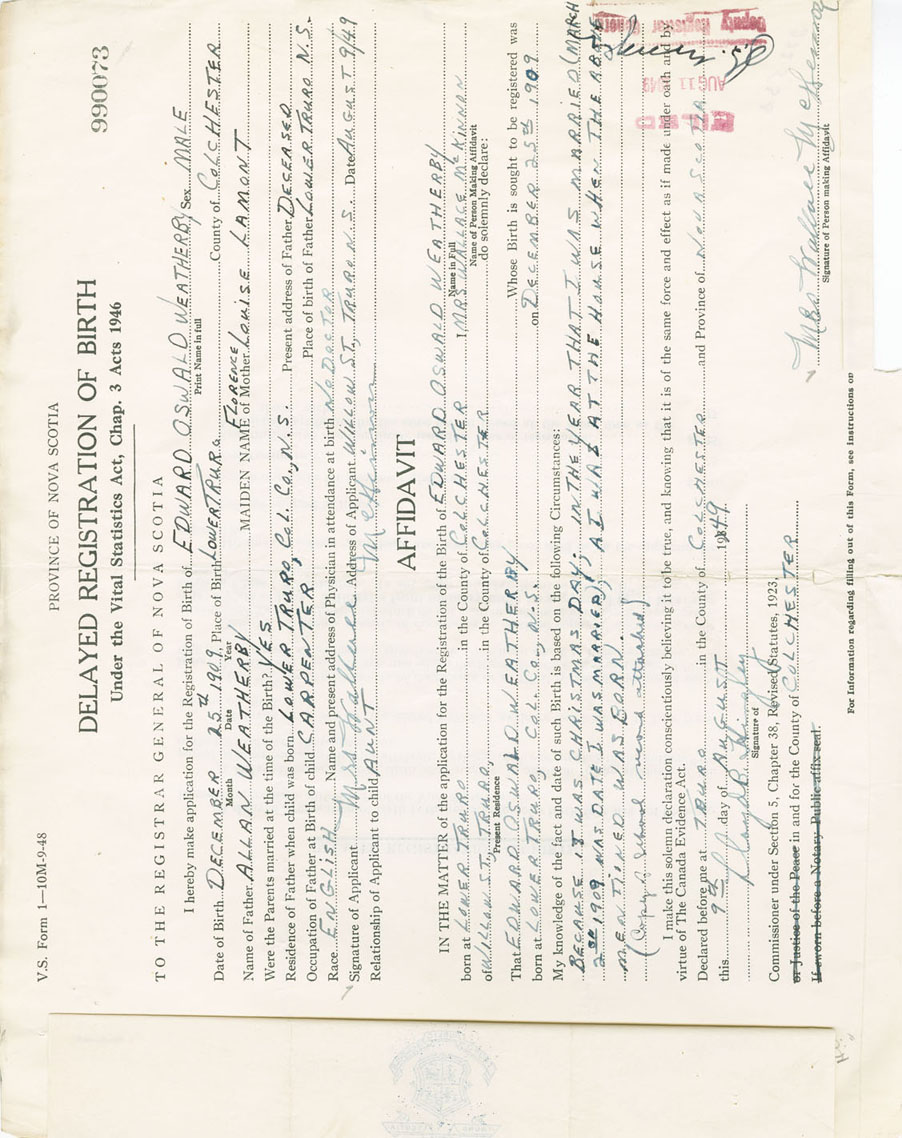 V.S. Form 1—10M-9-48
PROVINCE OF NOVA SCOTIA
990073
DELAYED REGISTRATION OF BIRTH
Under the Vital Statistics Act, Chap. 3 Acts 1946
TO THE REGISTRAR GENERAL OF NOVA SCOTIA
I hereby make application for the Registration of Birth of EDWARD OSWALD WEATHERBY Sex MALE
Print Name in full
Date of Birth DECEMBER 25th 1909 Place of Birth LOWER TRURO County of COLCHESTER
Month Date Year
FLORENCE
Name of Father ALLAN WEATHERBY MAIDEN NAME of Mother LOUISE LAMONT
Were the Parents married at the time of the Birth? YES Present address of Father DECEASED
Residence of Father when child was born LOWER TRURO, COL. CO., N.S. Place of birth of Father LOWER TRURO N.S.
Occupation of Father at Birth of child CARPENTER
Race ENGLISH Name and present address of Physician in attendance at birth NO DOCTOR
Signature of Applicant Mrs Wallace Address of Applicant WILLOW ST., TRURO N.S. Date AUGUST 9/49
Relationship of Applicant to child AUNT McKinnon
AFFIDAVIT
IN THE MATTER of the application for the Registration of the Birth of EDWARD OSWALD WEATHERBY
Name in Full
born at LOWER TRURO in the County of COLCHESTER I MRS. WALLACE McKINNON
Name of Person Making Affidavit
of WILLOW ST., TRURO, in the County of COLCHESTER do solemnly declare:
Present Residence
That EDWARD OSWALD WEATHERBY Whose Birth is sought to be registered was
born at LOWER TRURO, COL. CO., N.S. on DECEMBER 25th 1909
My knowledge of the fact and date of such Birth is based on the following Circumstances:
BECAUSE IT WAS CHRISTMAS DAY; IN THE YEAR THAT I WAS MARRIED (MARCH
2nd 1909 WAS DATE I WAS MARRIED), AS I WAS AT THE HOUSE WHEN THE ABOVE
MENTIONED WAS BORN.
(Copy of school record attached)
I make this solemn declaration conscientiously believing it to be true, and knowing that it is of the same force and effect as if made under oath and by
virtue of The Canada Evidence Act.
Declared before me at TRURO in the County of COLCHESTER and Province of NOVA SCOTIA
this 9th day of AUGUST 1949
Signature of
Mrs Wallace McKinnon
Signature of Person making Affidavit
Commissioner under Section 5, Chapter 38, Revised Statutes, 1923,
or Justice of the Peace in and for the County of COLCHESTER
If sworn before a Notary Public affix seal.
For Information regarding filling out of this Form, see instructions on
FILED
AUG 11 1949
Deputy Registrar General